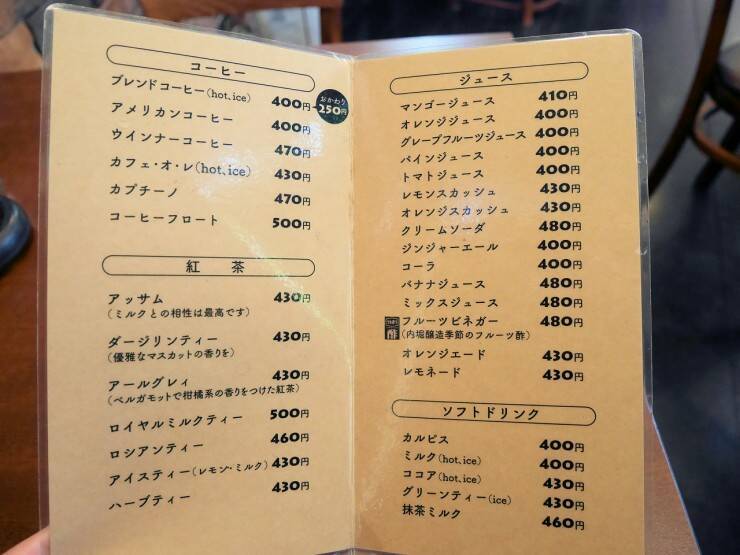 コーヒー
ブレンドコーヒー(hot、ice) 400円 おかわり 250円
アメリカンコーヒー 400円
ウインナーコーヒー 470円
カフェ・オ・レ(hot、ice) 430円
カプチーノ 470円
コーヒーフロート 500円
紅茶
アッサム 430円
(ミルクとの相性は最高です)
ダージリンティー 430円
(優雅なマスカットの香りを)
アールグレィ 430円
(ベルガモットで柑橘系の香りをつけた紅茶)
ロイヤルミルクティー 500円
ロシアンティー 460円
アイスティー(レモン・ミルク) 430円
ハーブティー 430円
ジュース
マンゴージュース 410円
オレンジジュース 400円
グレープフルーツジュース 400円
パインジュース 400円
トマトジュース 400円
レモンスカッシュ 430円
オレンジスカッシュ 430円
クリームソーダ 480円
ジンジャーエール 400円
コーラ 400円
バナナジュース 480円
ミックスジュース 480円
酢 フルーツビネガー 480円
(内堀醸造季節のフルーツ酢)
オレンジエード 430円
レモネード 430円
ソフトドリンク
カルピス 400円
ミルク(hot、ice) 400円
ココア(hot、ice) 430円
グリーンティー(ice) 430円
抹茶ミルク 460円